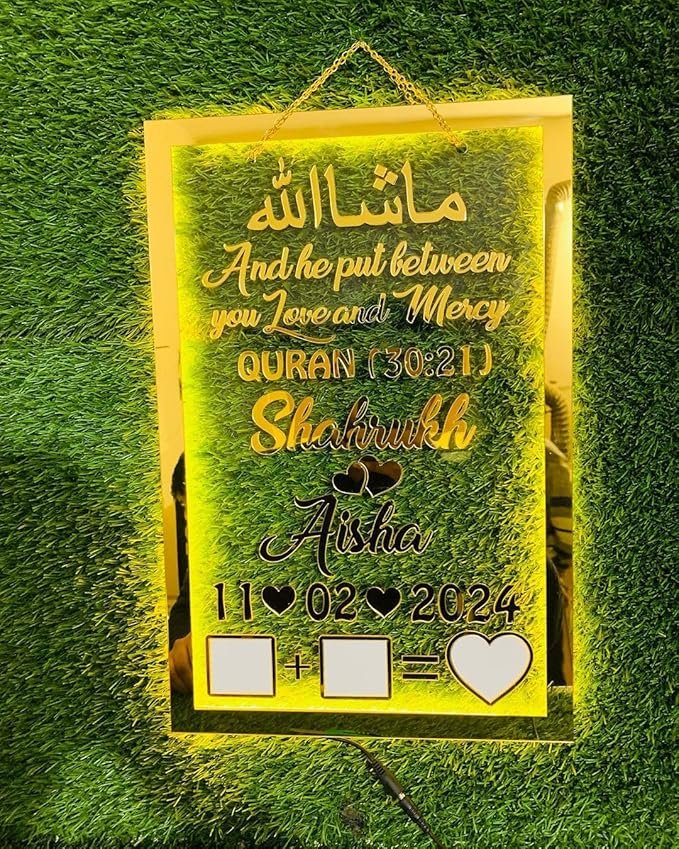 ماشاالله
And he put between
you Love and Mercy
QURAN (30:21)
Shahrukh
Aisha
11♥02♥2024
+ =